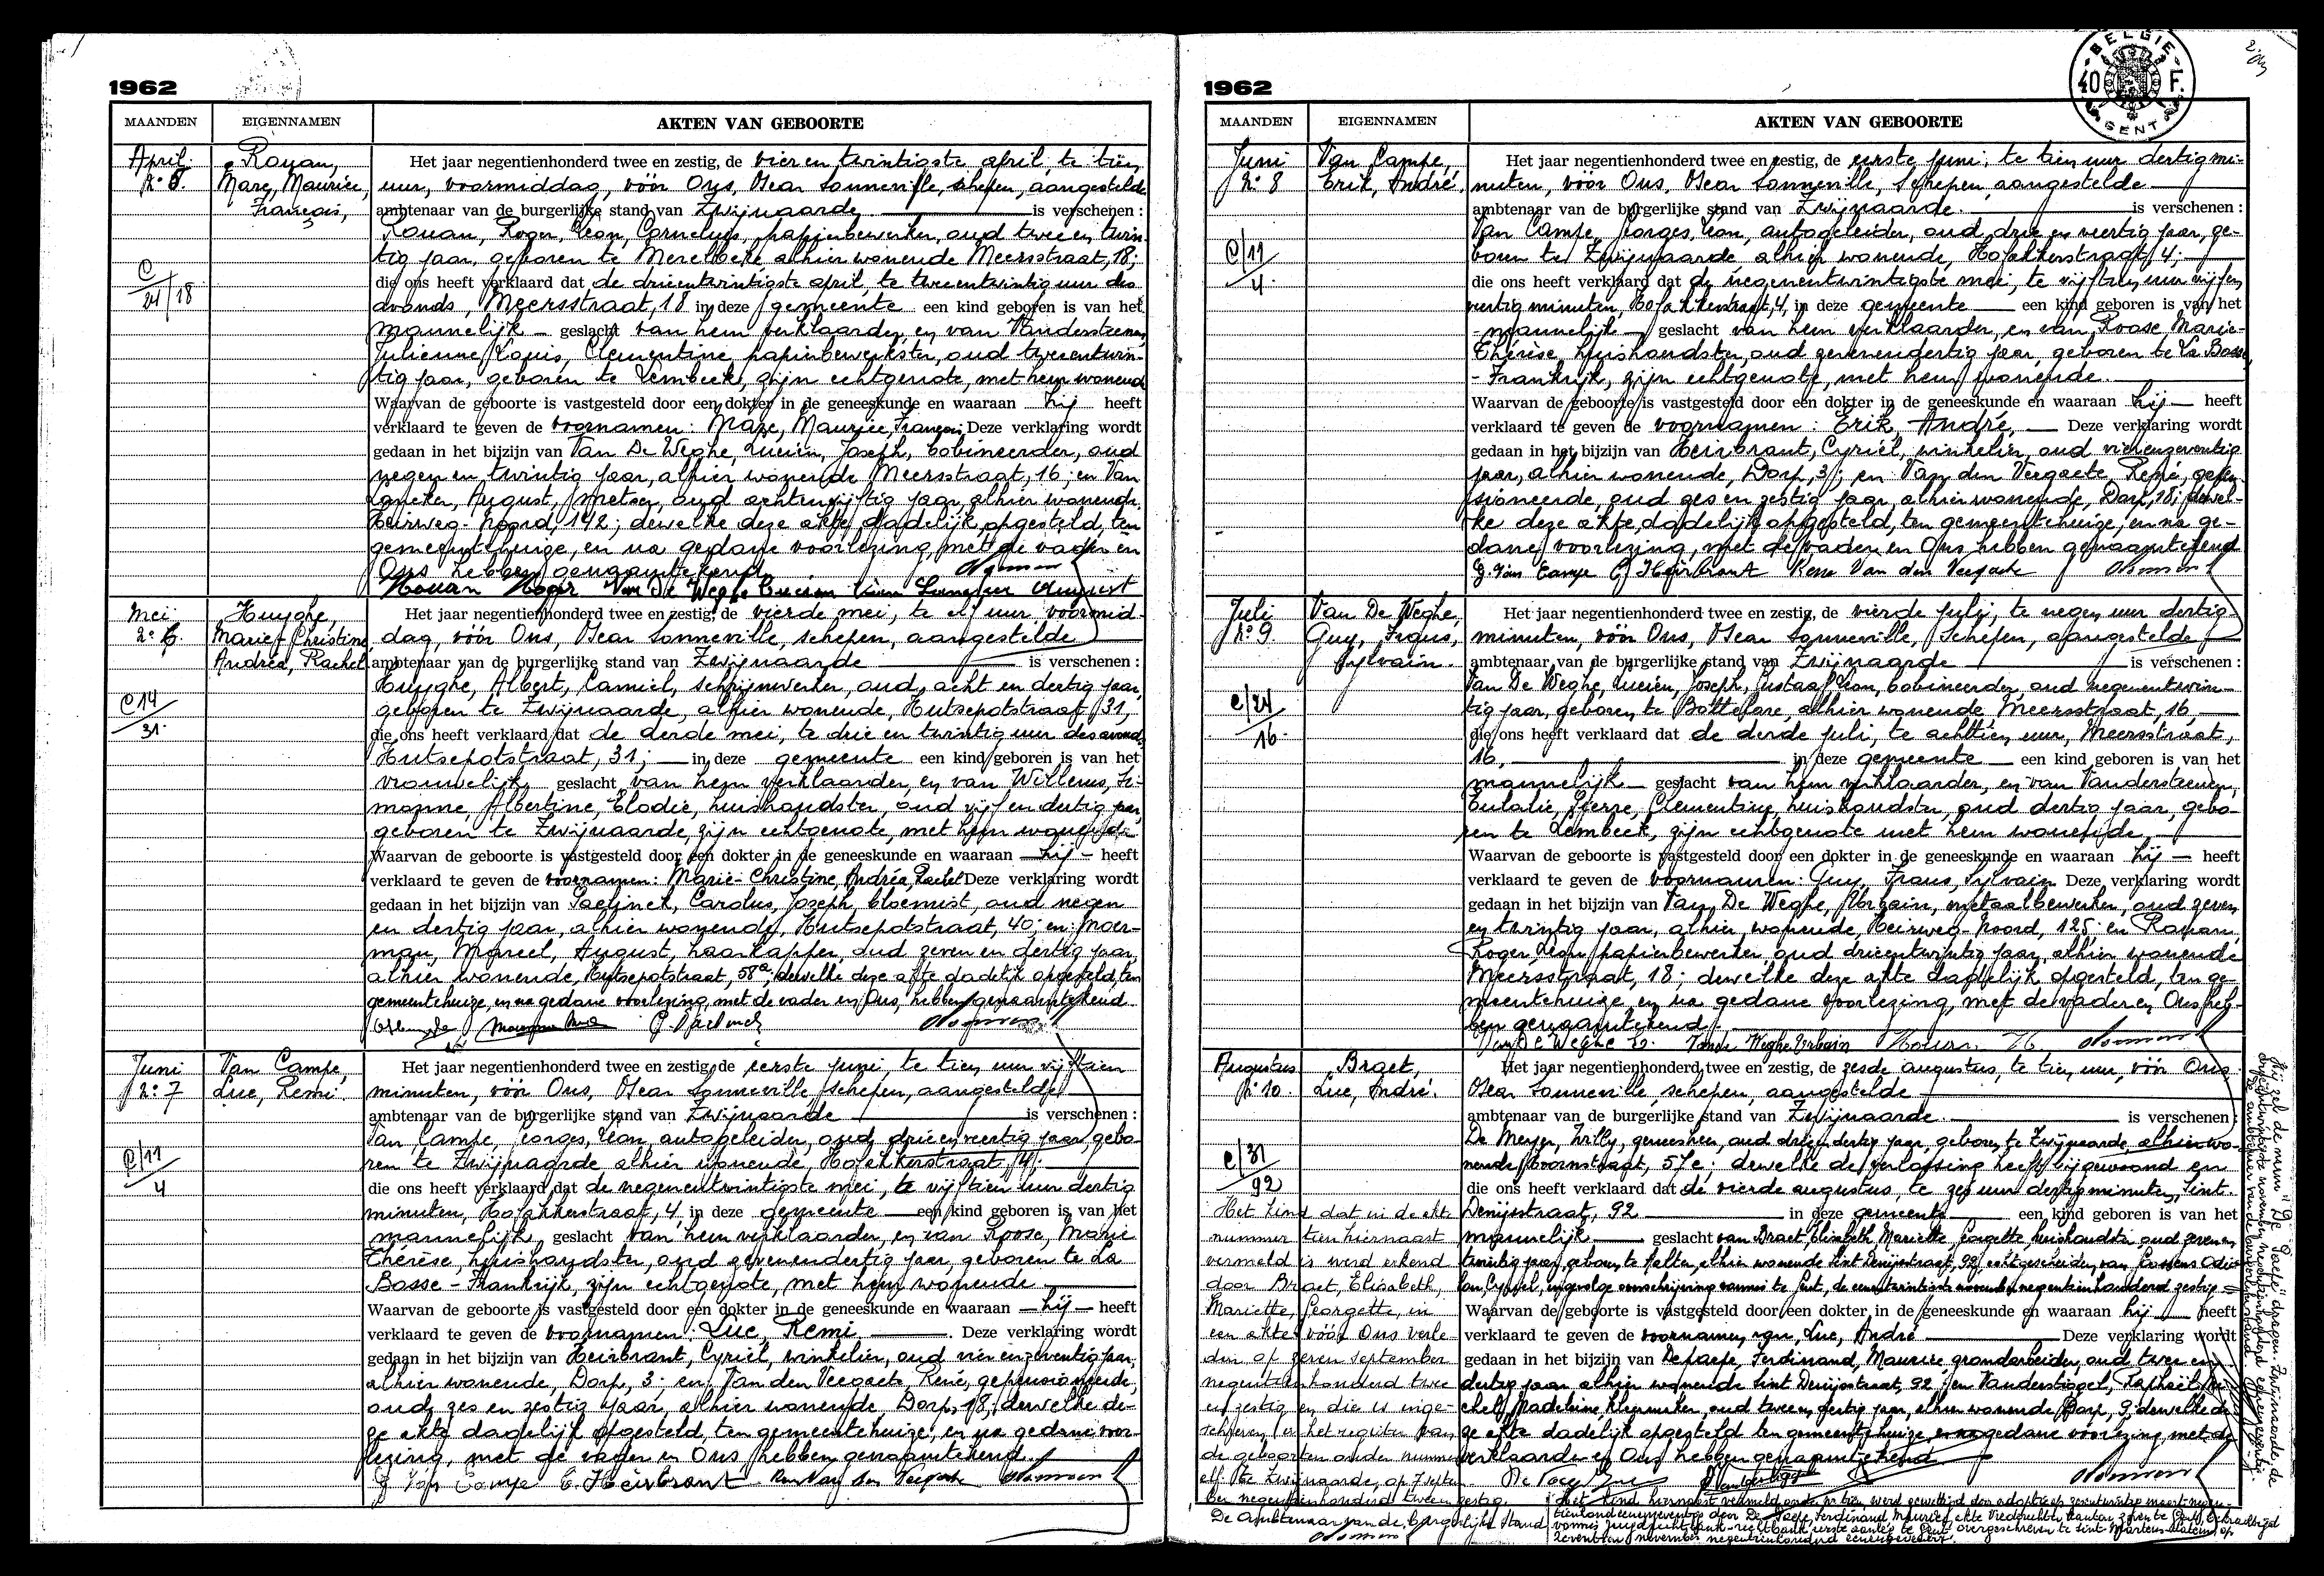 1962
MAANDEN EIGENNAMEN AKTEN VAN GEBOORTE
April Rouan, Het jaar negentienhonderd twee en zestig, de vier en twintigste april, te tien
Marc, Maurice, uur, voormiddag, vóór Ons, Oscar Sonneville, schepen, aangestelde
François, ambtenaar van de burgerlijke stand van Zwijnaarde is verschenen :
Rouan, Roger, Leon, Cornelius, papierbewerker, oud twee en twin-
tig jaar, geboren te Merelbeke alhier wonende Meersstraat, 18;
C
24/18
die ons heeft verklaard dat de drieentwintigste april, te tweeentwintig uur des
avonds, Meersstraat, 18 in deze gemeente een kind geboren is van het
mannelijk geslacht van hem verklaarder, en van Vandersteenen,
Julienne, Louis, Clementine, papierbewerkster, oud tweeentwin-
tig jaar, geboren te Lembeek, zijn echtgenote, met hem wonend
Waarvan de geboorte is vastgesteld door een dokter in de geneeskunde en waaraan hij heeft
verklaard te geven de voornamen: Marc, Maurice, François, Deze verklaring wordt
gedaan in het bijzijn van Van De Weghe, Lucien, Joseph, bobineerder, oud
negen en twintig jaar, alhier wonende Meersstraat, 16; en Van
August, metser, oud achtenvijftig jaar, alhier wonende
Heirweg-Noord, 142; dewelke deze akte, dadelijk opgesteld, ten
gemeentehuize, en na gedane voorlezing, met de vader en
Ons hebben genaamtekend
Rouan Roger Van De Weghe Lucien
Mei Huyghe, Het jaar negentienhonderd twee en zestig, de vierde mei, te elf uur voormid-
No 6. Marie-Christine dag, vóór Ons, Oscar Sonneville, schepen, aangestelde
Andréa, Rachel ambtenaar van de burgerlijke stand van Zwijnaarde is verschenen :
Huyghe, Albert, Camiel, schrijnwerker, oud acht en dertig jaar,
C 14
31.
geboren te Zwijnaarde, alhier wonende, Hutsepotstraat 31,
die ons heeft verklaard dat de derde mei, te drie en twintig uur des avonds,
Hutsepotstraat, 31; in deze gemeente een kind geboren is van het
vrouwelijk geslacht van hem verklaarder, en van Willems, Si-
monne, Albertine, Elodie, huishoudster, oud vijf en dertig jaar,
geboren te Zwijnaarde, zijn echtgenote, met hem wonende.
Waarvan de geboorte is vastgesteld door een dokter in de geneeskunde en waaraan hij heeft
verklaard te geven de voornamen: Marie-Christine, Andréa, Rachel Deze verklaring wordt
gedaan in het bijzijn van Paelinck, Carolus, Jozeph, bloemist, oud negen
en dertig jaar, alhier wonende, Hutsepotstraat, 40; en Moer-
man, Marcel, August, haarkapper, oud zeven en dertig jaar,
alhier wonende, Hutsepotstraat, 58a; dewelke deze akte dadelijk opgesteld, ten
gemeentehuize, en na gedane voorlezing, met de vader en Ons, hebben genaamtekend.
Juni Van Campe, Het jaar negentienhonderd twee en zestig, de eerste juni, te tien uur vijftien
No 7 Luc, Remi. minuten, vóór Ons, Oscar Sonneville schepen, aangestelde
ambtenaar van de burgerlijke stand van Zwijnaarde is verschenen :
Van Campe, Georges, Leon, autogeleider, oud drie en veertig jaar, gebo-
C/11
4
ren te Zwijnaarde alhier wonende, Hofakkerstraat, 4;
die ons heeft verklaard dat de negenentwintigste mei, te vijftien uur dertig
minuten, Hofakkerstraat, 4, in deze gemeente een kind geboren is van het
mannelijk geslacht van hem verklaarder, en van Roose, Marie
Thérèse, huishoudster, oud zevenendertig jaar, geboren te La
Basse - Frankrijk, zijn echtgenote, met hem wonende
Waarvan de geboorte is vastgesteld door een dokter in de geneeskunde en waaraan hij heeft
verklaard te geven de voornamen: Luc, Remi . Deze verklaring wordt
gedaan in het bijzijn van Heirbrant, Cyriel, winkelier, oud vier en zeventig jaar,
alhier wonende, Dorp, 3; en Van den Veegaete René, gepensioneerde,
oud, zes en zestig jaar, alhier wonende, Dorp, 18; dewelke de-
ze akte dadelijk opgesteld, ten gemeentehuize, en na gedane voor-
lezing, met de vader en Ons hebben genaamtekend.
G. Van Campe C. Heirbrant
1962
BELGIE
40 F.
GENT
MAANDEN EIGENNAMEN AKTEN VAN GEBOORTE
Juni Van Campe, Het jaar negentienhonderd twee en zestig, de eerste juni, te tien uur dertig mi-
No 8 Erik, André. nuten, vóór Ons, Oscar Sonneville, Schepen aangestelde
ambtenaar van de burgerlijke stand van Zwijnaarde. is verschenen :
Van Campe, Georges, Leon, autogeleider, oud, drie en veertig jaar, ge-
C/11
4
boren te Zwijnaarde alhier wonende, Hofakkerstraat, 4;
die ons heeft verklaard dat de negenentwintigste mei, te vijftien uur vijfen
veertig minuten, Hofakkerstraat, 4, in deze gemeente een kind geboren is van het
mannelijk geslacht van hem verklaarder, en van Roose Marie-
Thérèse, huishoudster, oud zevenendertig jaar, geboren te La Basse,
- Frankrijk, zijn echtgenote, met hem wonende.
Waarvan de geboorte is vastgesteld door een dokter in de geneeskunde en waaraan hij heeft
verklaard te geven de voornamen: Erik, André, Deze verklaring wordt
gedaan in het bijzijn van Heirbrant, Cyriël, winkelier, oud vierenzeventig
jaar, alhier wonende, Dorp, 3; en Van den Veegaete, René, gepen-
sioneerde, oud zes en zestig jaar, alhier wonende, Dorp, 18; dewel-
ke deze akte, dadelijk opgesteld, ten gemeentehuize, en na ge-
dane voorlezing, met de vader en Ons hebben genaamtekend
G. Van Campe C. Heirbrant Rene Van den Veegaete
Juli Van De Weghe, Het jaar negentienhonderd twee en zestig, de vierde juli, te negen uur dertig
No 9 Guy, Frans, minuten, vóór Ons, Oscar Sonneville, Schepen, aangestelde
Sylvain. ambtenaar van de burgerlijke stand van Zwijnaarde is verschenen :
Van De Weghe, Lucien, Joseph, Gustaaf, Leon, bobineerder, oud negenentwin-
C/24
16.
tig jaar, geboren te Bottelare, alhier wonende Meersstraat, 16,
die ons heeft verklaard dat de derde juli, te achttien uur, Meersstraat,
16, in deze gemeente een kind geboren is van het
mannelijk geslacht van hem verklaarder, en van Vandersteenen,
Eulalie, Pierre, Clementine, huishoudster, oud dertig jaar, gebo-
ren te Lembeek, zijn echtgenote met hem wonende,
Waarvan de geboorte is vastgesteld door een dokter in de geneeskunde en waaraan hij heeft
verklaard te geven de voornamen: Guy, Frans, Sylvain Deze verklaring wordt
gedaan in het bijzijn van Van De Weghe, metaalbewerker, oud zeven
en twintig jaar, alhier wonende, Heirweg-Noord, 125; en Rouan,
Roger Leon papierbewerker oud drieentwintig jaar, alhier wonende
Meersstraat, 18; dewelke deze akte dadelijk opgesteld, ten ge-
meentehuize, en na gedane voorlezing, met de vader en Ons heb-
ben genaamtekend.
Van De Weghe L. Van de Weghe Urbain Rouan R.
Augustus Braet, Het jaar negentienhonderd twee en zestig, de zesde augustus, te tien uur, vóór Ons
No 10. Luc, André. Oscar Sonneville, schepen, aangestelde
ambtenaar van de burgerlijke stand van Zwijnaarde. is verschenen :
De Meyer, Willy, geneesheer, oud drieendertig jaar, geboren te Zwijnaarde, alhier wo-
C/31
92
nende, Hoornstraat, 57e; dewelke de verlossing heeft bijgewoond en
die ons heeft verklaard dat de vierde augustus, te zes uur dertig minuten, Sint.
Denijsstraat, 92 in deze gemeente een kind geboren is van het
mannelijk geslacht van Braet, Elisabeth, Mariette, Georgette, huishoudster, oud zeven en
twintig jaar, geboren te Aalter, alhier wonende Sint Denijsstraat, 92, echtgescheiden van
Waarvan de geboorte is vastgesteld door een dokter in de geneeskunde en waaraan hij heeft
verklaard te geven de voornamen van Luc, André Deze verklaring wordt
gedaan in het bijzijn van Depaepe, Ferdinand, Maurice, grondarbeider, oud twee en
dertig jaar alhier wonende Sint Denijsstraat, 92 en
Madeleine, kleermaker, oud twee en veertig jaar, alhier wonende Dorp, 9; dewelke de
ze akte dadelijk opgesteld ten gemeentehuize, en na gedane voorlezing, met de
verklaarder en Ons hebben genaamtekend
Het kind dat in de akte
nummer tien hiernaast
vermeld is werd erkend
door Braet, Elisabeth,
Mariette, Georgette, in
een akte vóór Ons verle
den op zeven september
negentienhonderd twee
en zestig en die is inge-
schreven in het register van
de geboorten onder nummer
elf. Te Zwijnaarde, op zeven
ber negentienhonderd twee en zestig.
De Ambtenaar van de burgerlijke stand